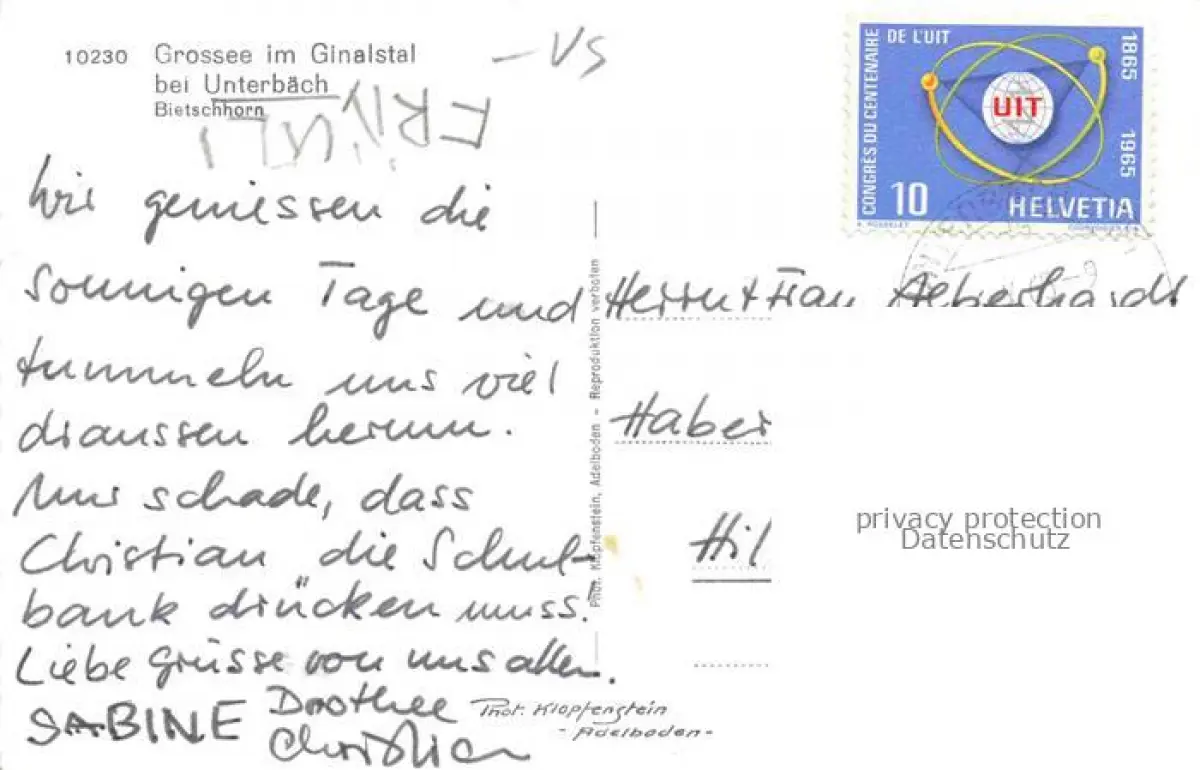 10230 Grossee im Ginalstal
bei Unterbäch
Bietschhorn
- VS
CONGRÈS DU CENTENAIRE
DE L'UIT
1865 1965
UIT
10 HELVETIA
Wir geniessen die
sonnigen Tage und
tummeln uns viel
draussen herum.
Nur schade, dass
Christian die Schul-
bank drücken muss.
Liebe Grüsse von uns allen.
SABINE Dorothee
Christian
Phot. Klopfenstein, Adelboden - Reproduktion verboten
Herrn + Frau Aeberhardt
Haber
Hil
privacy protection
Datenschutz
Phot. Klopfenstein
- Adelboden -